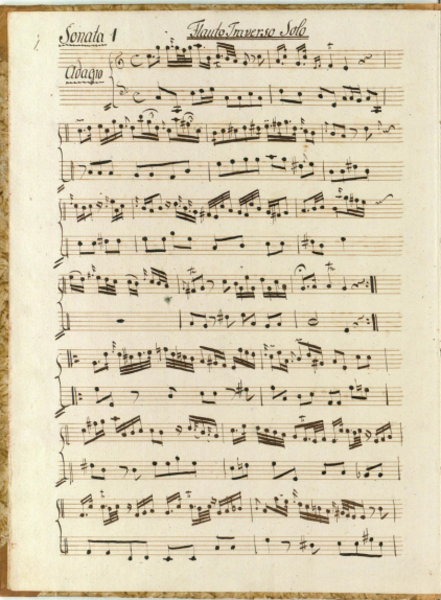 Sonata 1
Flauto Traverso Solo
Adagio